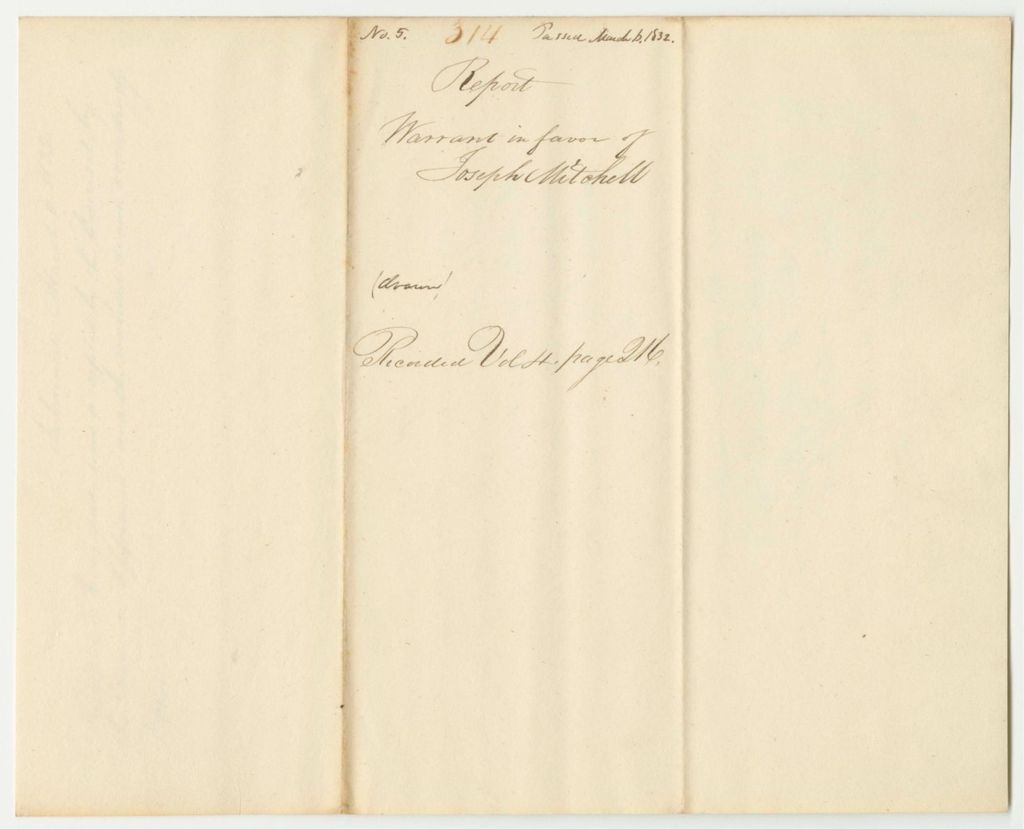 No. 5. 314 Passed March 6, 1832.
Report
Warrant in favor of
Joseph Mitchell
(drawn)
Recorded Vol 4. page 216.